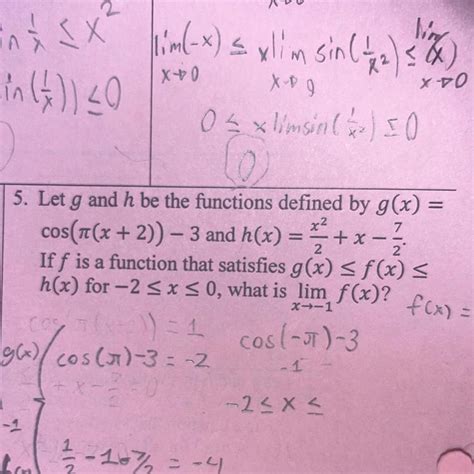 in 1/x ≤ x²
in(1/x)) ≤ 0
lim(-x) ≤ x lim sin(1/x²) ≤ lim (x)
x→0 x→0 x→0
0 ≤ x lim sin(1/x²) ≤ 0
0
5. Let g and h be the functions defined by g(x) =
cos(π(x + 2)) − 3 and h(x) = x²/2 + x − 7/2.
If f is a function that satisfies g(x) ≤ f(x) ≤
h(x) for −2 ≤ x ≤ 0, what is lim x→−1 f(x)?
f(x) =
= 1
cos(-π)-3
g(x) cos(π)-3 = -2
-1
-2 ≤ x ≤
-1
1/2 - 1 = -4